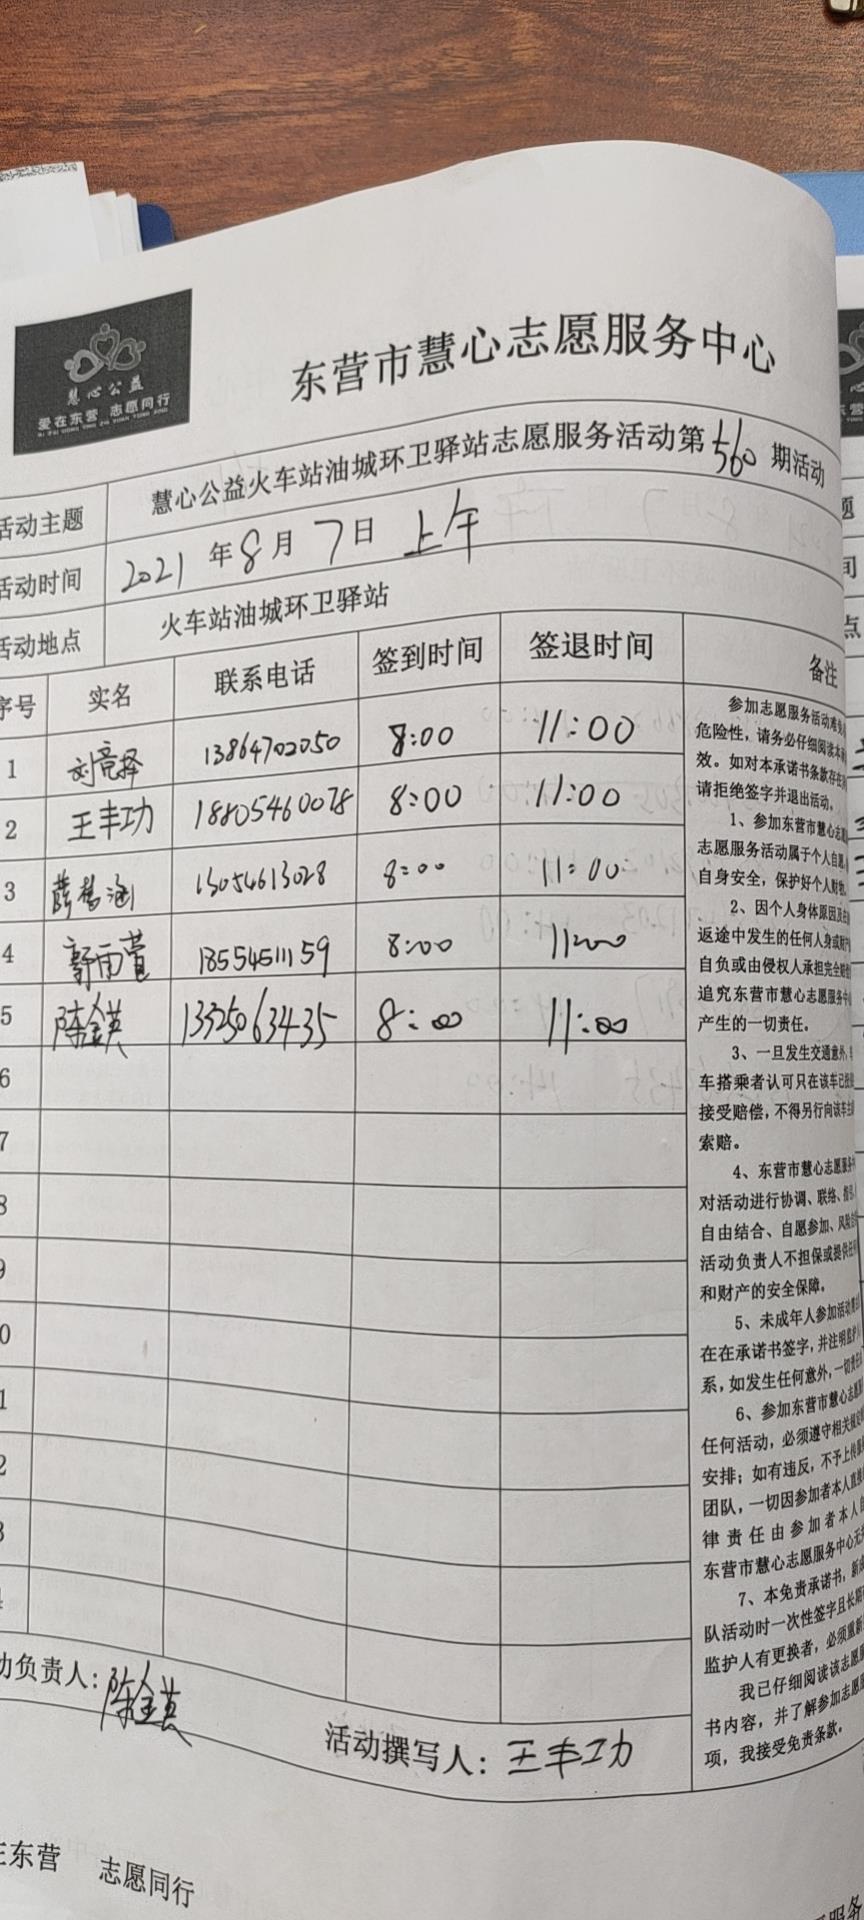 慧心公益
爱在东营 志愿同行
东营市慧心志愿服务中心
活动主题 慧心公益火车站油城环卫驿站志愿服务活动第560期活动
活动时间 2021年8月7日 上午
活动地点 火车站油城环卫驿站
序号 实名 联系电话 签到时间 签退时间 备注
1 刘竞择 13864702050 8:00 11:00
2 王丰功 18805460078 8:00 11:00
3 薛梦涵 13054613028 8:00 11:00
4 雨萱 18554511159 8:00 11:00
5 陈金英 13325063435 8:00 11:00
6
7
8
9
0
1
2
3
参加志愿服务活动难免
危险性，请务必仔细阅读本
效。如对本承诺书条款存在
请拒绝签字并退出活动。
1、参加东营市慧心志愿
志愿服务活动属于个人自愿，
自身安全，保护好个人财物。
2、因个人身体原因及在
返途中发生的任何人身或财产
自负或由侵权人承担完全赔偿
追究东营市慧心志愿服务中心
产生的一切责任。
3、一旦发生交通意外，
车搭乘者认可只在该车已投
接受赔偿，不得另行向该车主
索赔。
4、东营市慧心志愿服务中
对活动进行协调、联络、指引，
自由结合、自愿参加、风险
活动负责人不担保或提供任何
和财产的安全保障。
5、未成年人参加活动
在在承诺书签字，并注明监护人
系，如发生任何意外，一切责任
6、参加东营市慧心志愿
任何活动，必须遵守相关规定
安排；如有违反，不予上传
团队，一切因参加者本人直接
律责任由参加者本人
东营市慧心志愿服务中心无
7、本免责承诺书，新
队活动时一次性签字且长期
监护人有更换者，必须重新
我已仔细阅读该志愿
书内容，并了解参加志愿
项，我接受免责条款。
动负责人：陈金英
活动撰写人：王丰功
在东营 志愿同行